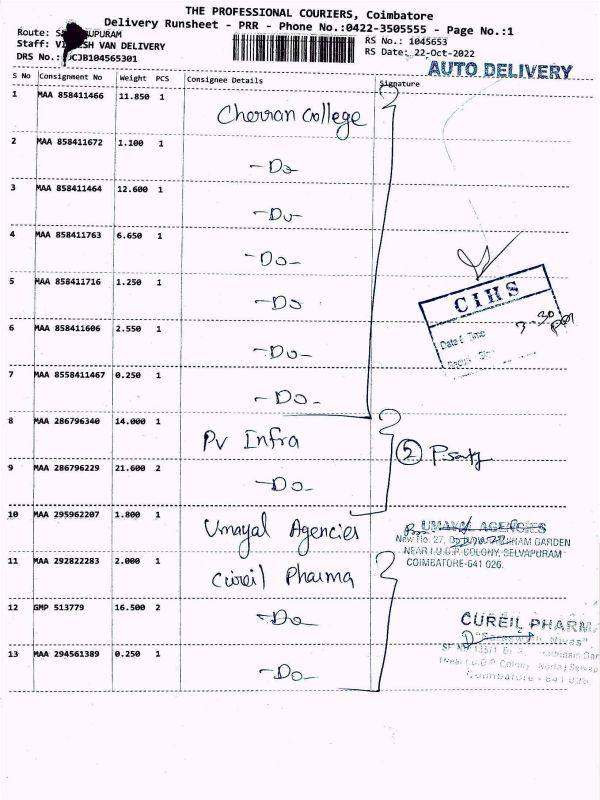 THE PROFESSIONAL COURIERS, Coimbatore
Delivery Runsheet - PRR - Phone No.:0422-3505555 - Page No.:1
Route: UPURAM
Staff: VAN DELIVERY
DRS No.: JCJB104565301
RS No.: 1045653
RS Date: 22-Oct-2022
AUTO DELIVERY
S No Consignment No Weight PCS Consignee Details Signature
1 MAA 858411466 11.850 1 Cherran College
2 MAA 858411672 1.100 1 -Do-
3 MAA 858411464 12.600 1 -Do-
4 MAA 858411763 6.650 1 -Do-
5 MAA 858411716 1.250 1 -Do-
CIHS
Date & Time 3-30 PM
6 MAA 858411606 2.550 1 -Do-
7 MAA 8558411467 0.250 1 -Do-
8 MAA 286796340 14.000 1 Pv Infra
2
9 MAA 286796229 21.600 2 -Do-
10 MAA 295962207 1.800 1 Umayal Agencies
UMAYAL AGENCIES
New No. 27, GARDEN
NEAR I.U.D.P. COLONY, SELVAPURAM
COIMBATORE-641 026.
11 MAA 292822283 2.000 1 Cureil Pharma
12 GMP 513779 16.500 2 -Do-
CUREIL PHARMA
13 MAA 294561389 0.250 1 -Do-
Coimbatore - 641 026